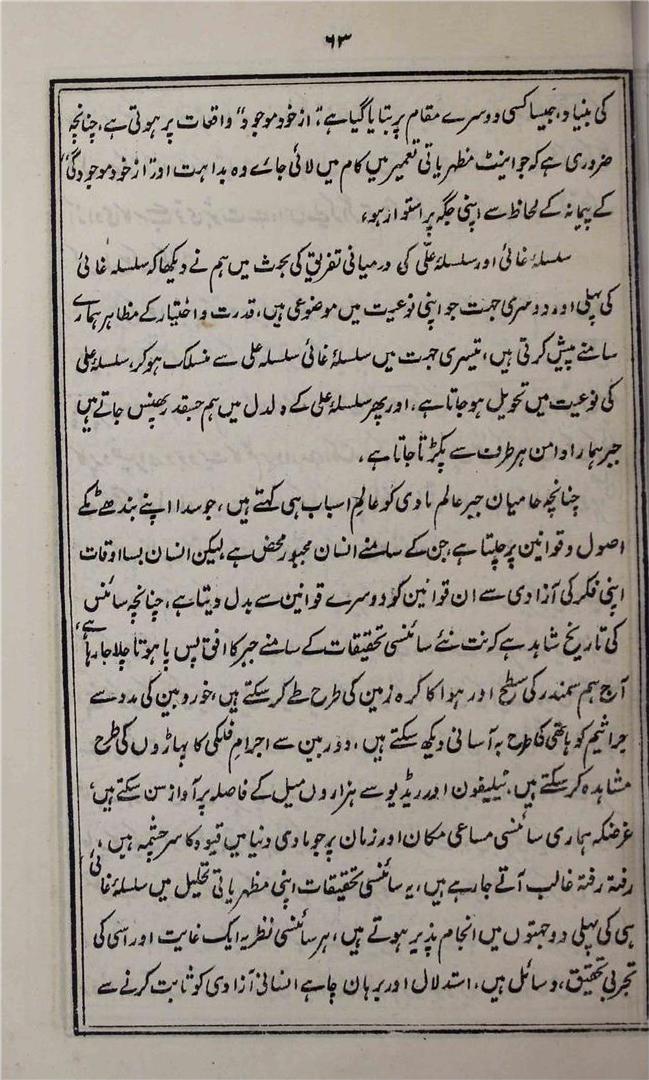 ۶۳
کی بنیاد، جیسا کسی دوسرے مقام پر بتایا گیا ہے، "از خود موجود" واقعات پر ہوتی ہے، چنانچہ
ضروری ہے کہ جو اینٹ مظہریاتی تعمیر میں کام میں لائی جائے وہ بداہت اور "از خود موجودگی"
کے پیمانہ کے لحاظ سے اپنی جگہ پر استوار ہو،
سلسلۂ غائی اور سلسلۂ علّی کی درمیانی تفریق کی بحث میں ہم نے دیکھا کہ سلسلہ غائی
کی پہلی اور دوسری جہت جو اپنی نوعیت میں موضوعی ہیں، قدرت و اختیار کے مظاہر ہمارے
سامنے پیش کرتی ہیں، تیسری جہت میں سلسلۂ غائی سلسلہ علی سے منسلک ہو کر، سلسلۂ علی
کی نوعیت میں تحویل ہو جاتا ہے، اور پھر سلسلۂ علی کے دلدل میں ہم جسقدر پھنس جاتے ہیں
جبر ہمارا دامن ہر طرف سے پکڑتا جاتا ہے،
چنانچہ حامیان جبر عالم مادی کو عالمِ اسباب ہی کہتے ہیں، جو سدا اپنے بندھے ٹکے
اصول و قوانین پر چلتا ہے، جن کے سامنے انسان مجبور محض ہے لیکن انسان بسا اوقات
اپنی فکر کی آزادی سے ان قوانین کو دوسرے قوانین سے بدل دیتا ہے، چنانچہ سائنس
کی تاریخ شاہد ہے کہ نت نئے سائنسی تحقیقات کے سامنے جبر کا افق پس پا ہوتا چلا جا رہا ہے،
آج ہم سمندر کی سطح اور ہوا کا کرہ زمین کی طرح طے کر سکتے ہیں، خوردبین کی مدد سے
جراثیم کو ہاتھی کی طرح بہ آسانی دیکھ سکتے ہیں، دوربین سے اجرام فلکی کا پہاڑوں کی طرح
مشاہدہ کر سکتے ہیں، ٹیلیفون اور ریڈیو سے ہزاروں میل کے فاصلہ پر آواز سن سکتے ہیں،
غرضکہ ہماری سائنسی مساعی مکان اور زمان پر جو مادی دنیا میں قیود کا سرچشمہ ہیں،
رفتہ رفتہ غالب آتے جا رہے ہیں، یہ سائنسی تحقیقات اپنی مظہریاتی تحلیل میں سلسلۂ غائی
ہی کی پہلی دو جہتوں میں انجام پذیر ہوتے ہیں، ہر سائنسی نظریہ ایک غایت اور اسی کی
تجربی تحقیق، وسائل ہیں، استدلال اور برہان چاہے انسانی آزادی کو ثابت کرنے سے